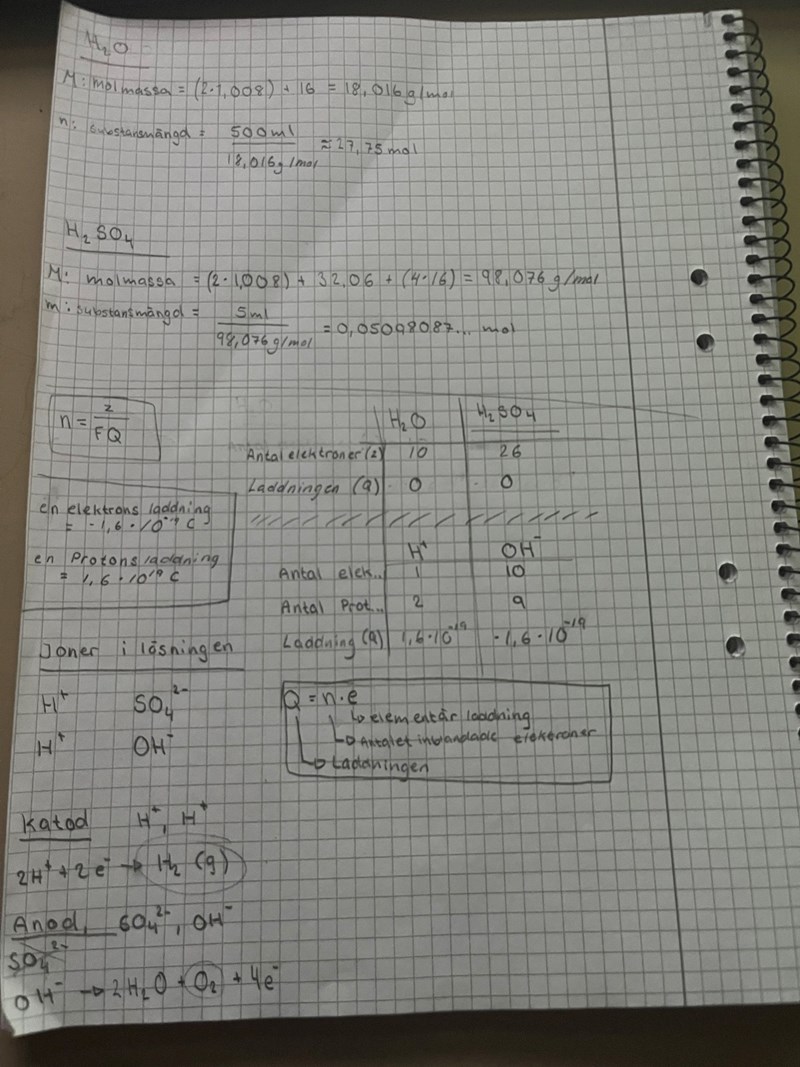 H₂O
M: molmassa = (2·1,008) + 16 = 18,016 g/mol
n: substansmängd = 500ml / 18,016g/mol ≈ 27,75 mol
H₂SO₄
M: molmassa = (2·1,008) + 32,06 + (4·16) = 98,076 g/mol
m: substansmängd = 5ml / 98,076 g/mol = 0,05098087... mol
n = z / FQ
H₂O H₂SO₄
Antal elektroner (z) 10 26
Laddningen (Q) 0 0
en elektrons laddning
= -1,6 · 10⁻¹⁹ C
en Protons laddning
= 1,6 · 10¹⁹ C
H⁺ OH⁻
Antal elek.. 1 10
Antal Prot.. 2 9
Laddning (Q) 1,6·10⁻¹⁹ -1,6·10⁻¹⁹
Joner i lösningen
H⁺ SO₄²⁻
H⁺ OH⁻
Q = n·e
↳ elementär laddning
↳ Antalet inblandade elektroner
↳ Laddningen
Katod H⁺, H⁺
2H⁺ + 2e⁻ → H₂ (g)
Anod, SO₄²⁻, OH⁻
SO₄²⁻
OH⁻ → 2H₂O + O₂ + 4e⁻